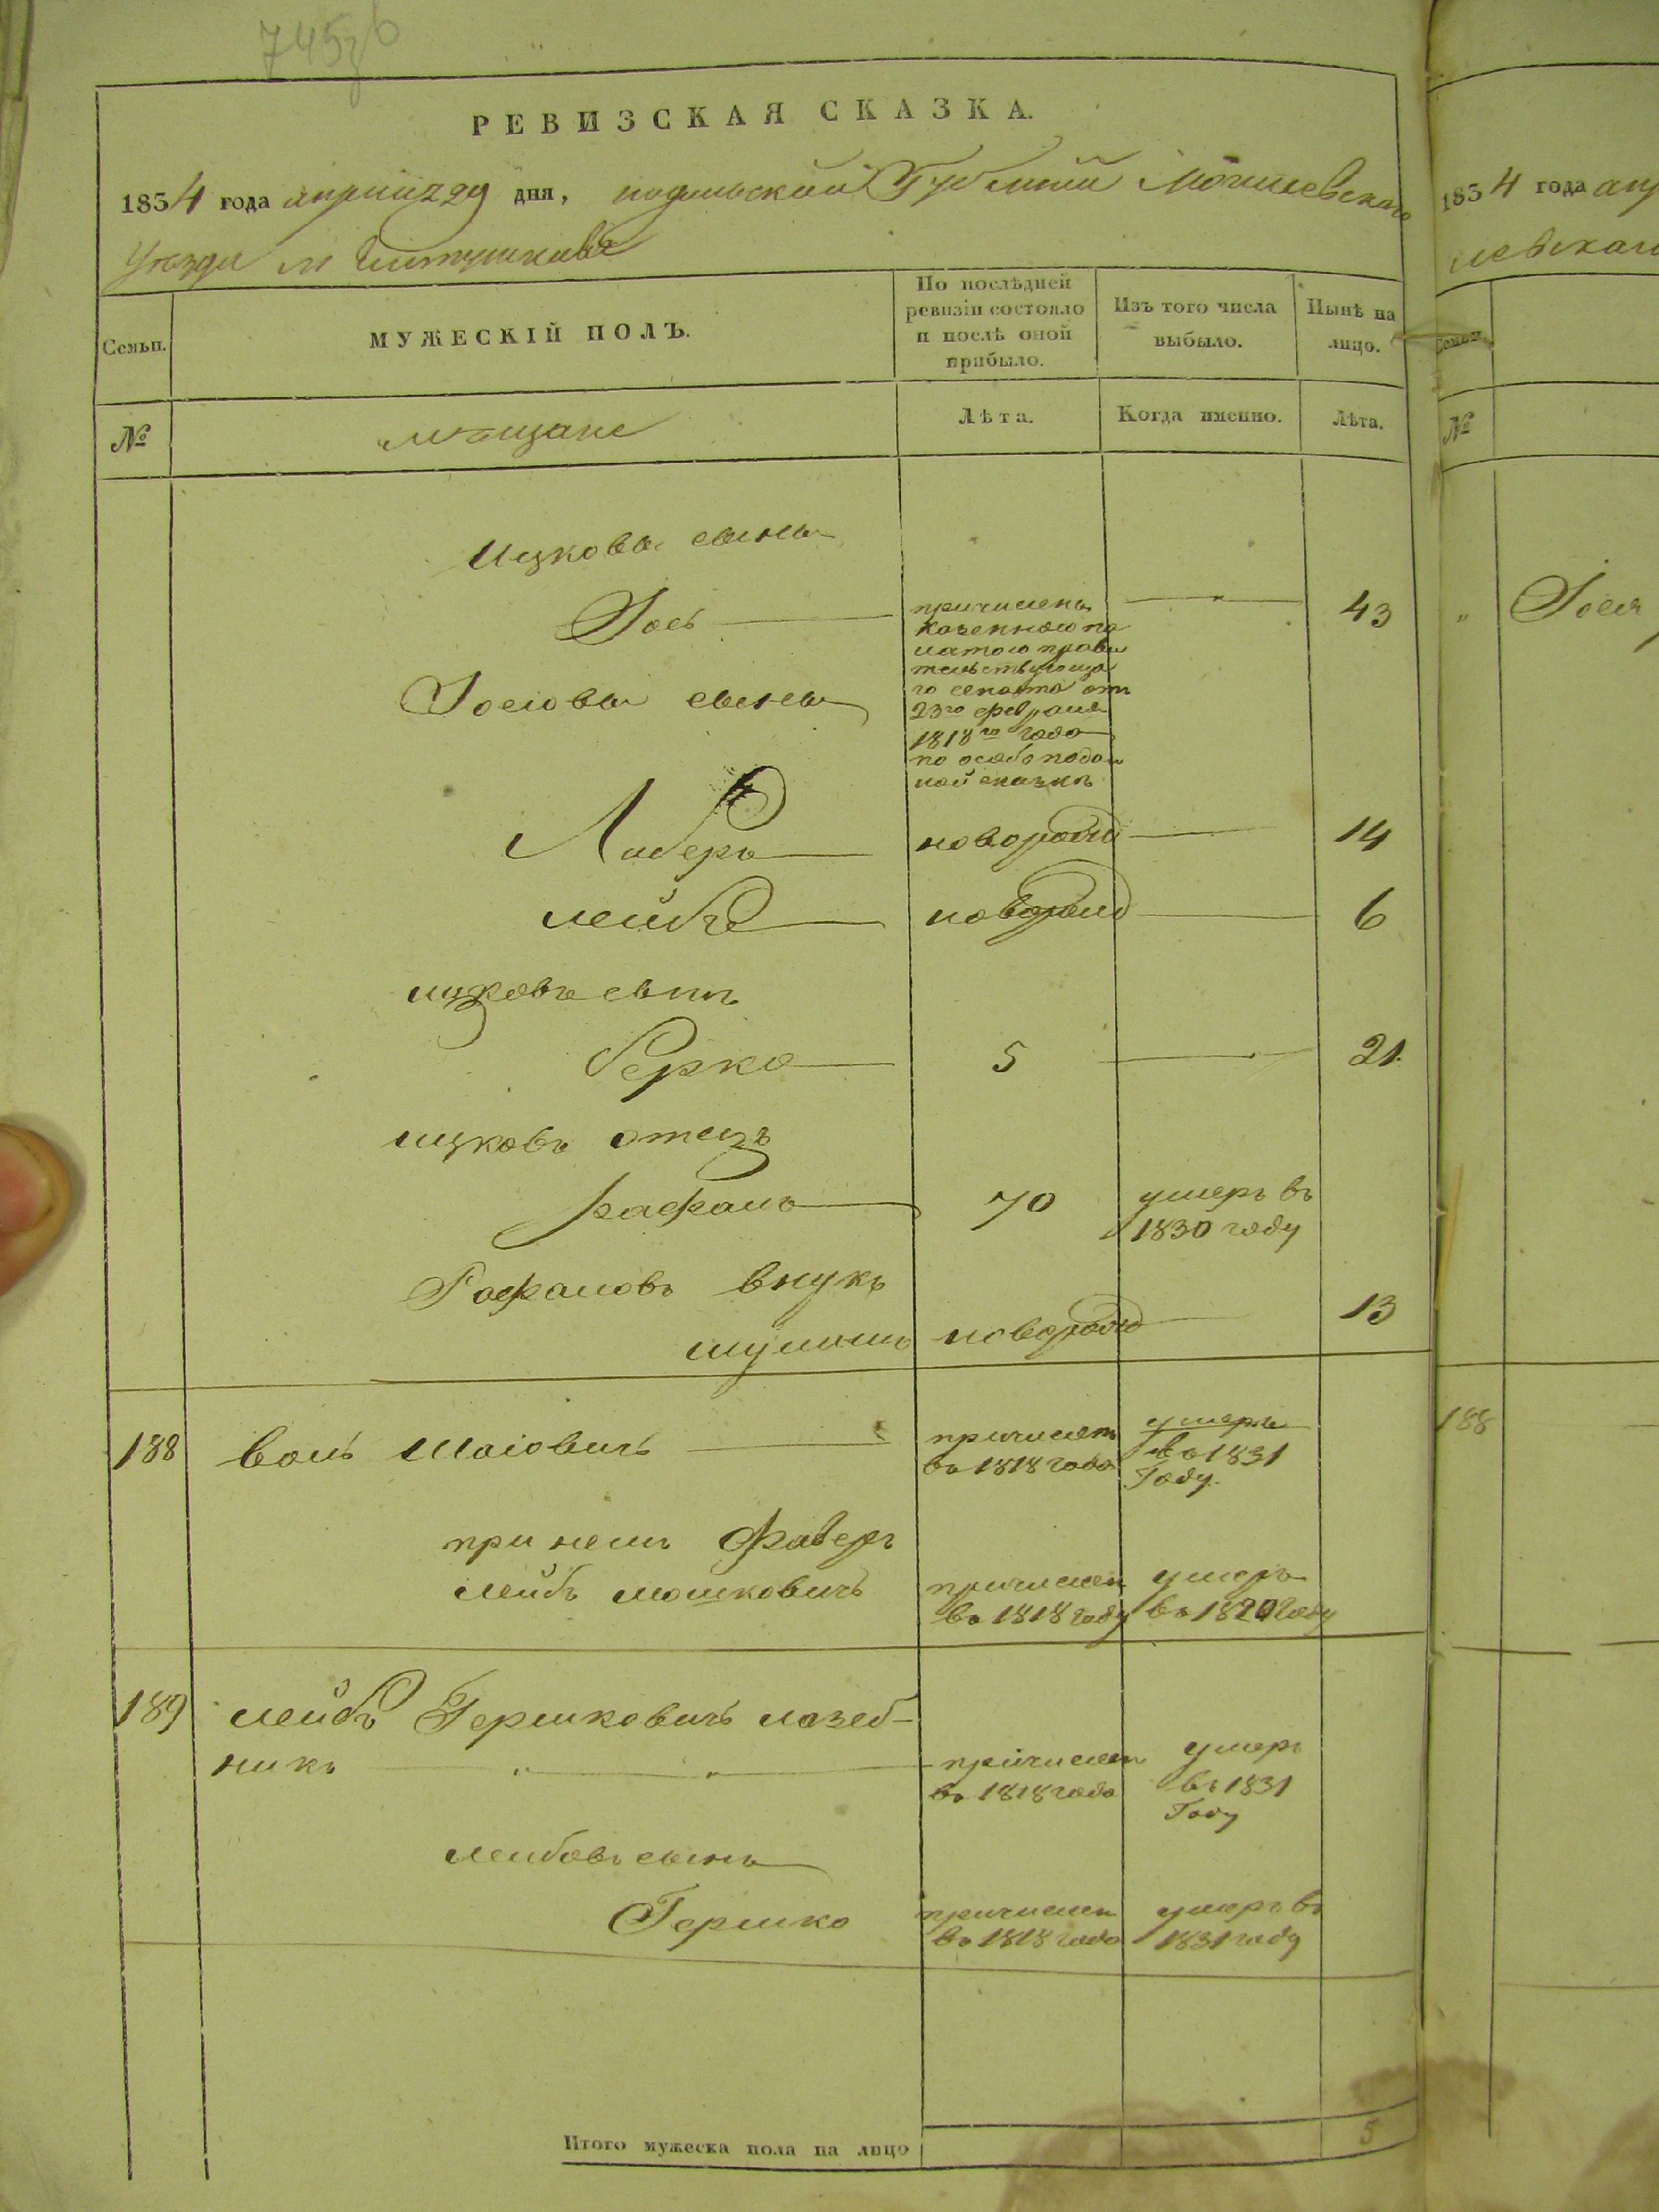 745
РЕВИЗСКАЯ СКАЗКА.
1834 года апрѣля 29 дня, подольской Губерніи Могилевскаго
Уѣзда м
Семьи.
МУЖЕСКІЙ ПОЛЪ.
По послѣдней ревизіи состояло и послѣ оной прибыло.
Изъ того числа выбыло.
Нынѣ на лицо.
№
мѣщане
Лѣта.
Когда именно.
Лѣта.
Ицковы сыны
Іось
причисленъ
казенною па
латою прави
тельствующа
го сената отъ
23го февраля
1818го года
по особо подан
ной сказкѣ
43
Іосіовы сыны
Либеръ новорожд 14
лейбъ новорожд 6
ицковъ сынъ
Берко 5 21
ицковъ отецъ
рафаль 70 умеръ въ
1830 году
Рафаловъ внукъ
шулимъ новорожд 13
188 воль Шаіовичъ причислен умеръ
въ 1818 года въ 1831
Году.
при немъ
лейбъ мошковичъ причислен умеръ
въ 1818 году въ 1820 Году
189 лейбъ Гершковичъ лазеб-
никъ " " причислен умеръ
въ 1818 года въ 1831
Году
лейбовъ сынъ
Гершко причислен умеръ въ
въ 1818 года 1831 году
Итого мужеска пола на лицо 5
1834 года апр
левскаго
Семьи.
№
"
188